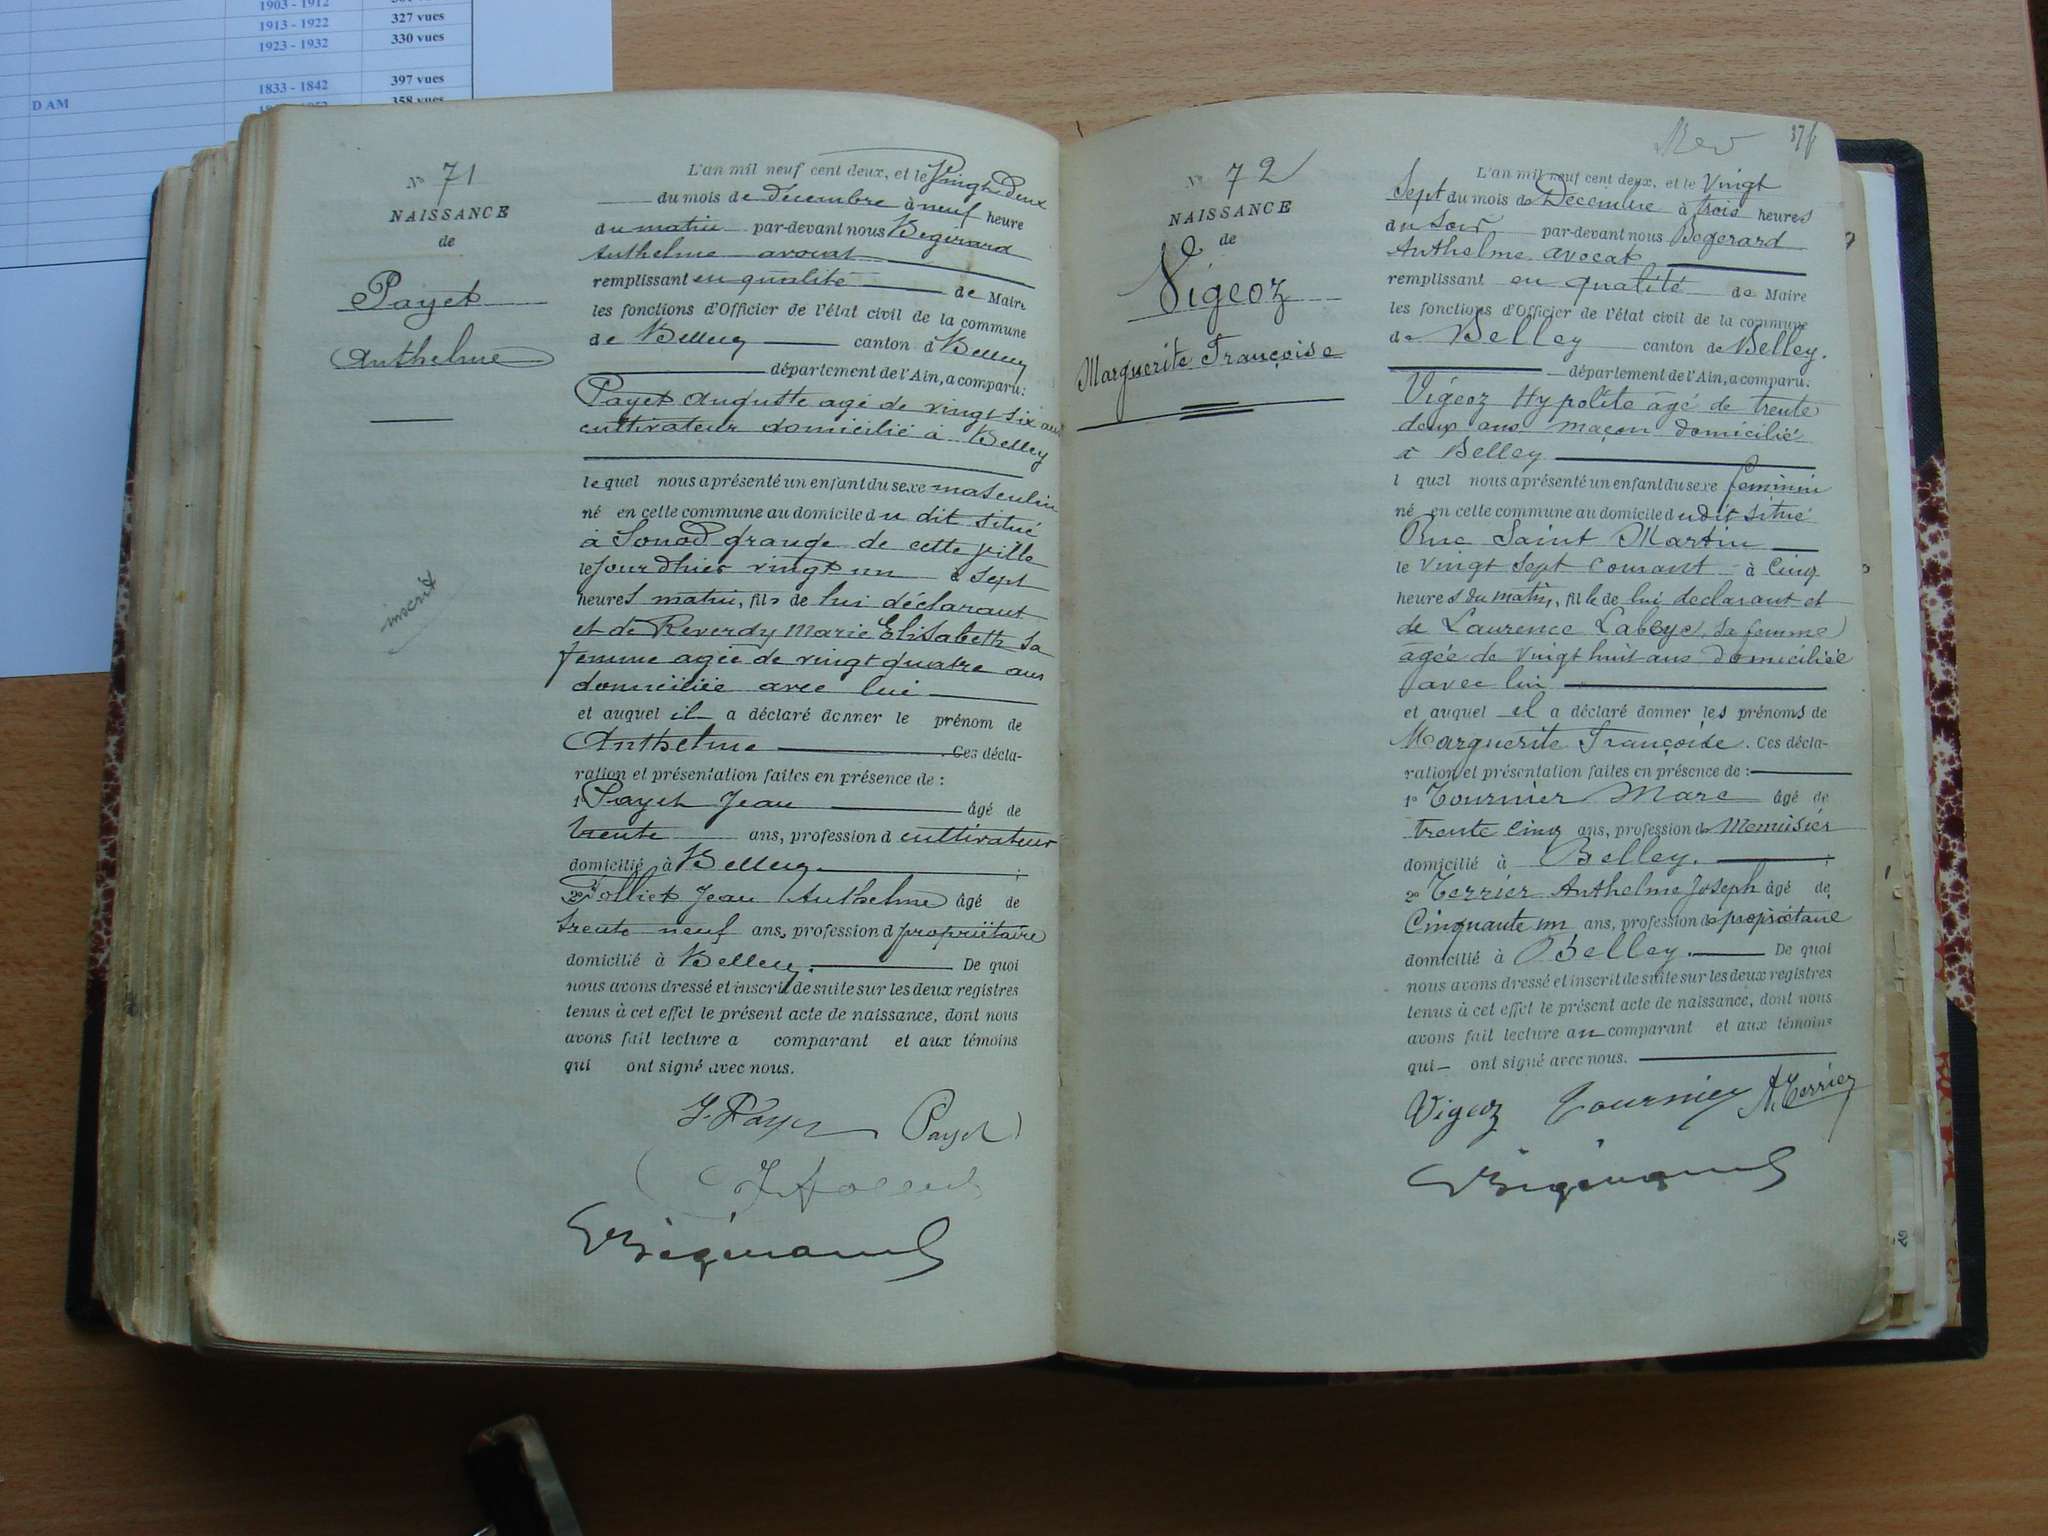 1903 - 1912
1913 - 1922 327 vues
1923 - 1932 330 vues
1833 - 1842 397 vues
D AM
358 vues
No 71
NAISSANCE
de
Payet
Anthelme
inscrit
L'an mil neuf cent deux, et le Vingt Deux
du mois de décembre à neuf heure
du matin par-devant nous Bégerard
Anthelme avocat
remplissant en qualité de Maire
les fonctions d'Officier de l'état civil de la commune
de Belley canton d Belley
département de l'Ain, a comparu:
Payet Auguste agé de vingt six ans
cultivateur domicilié à Belley
lequel nous a présenté un enfant du sexe masculin
né en cette commune au domicile du dit situé
à grange de cette ville
le jour dhier vingt un à sept
heures matin, fils de lui déclarant
et de Reverdy Marie Elisabeth sa
femme agée de vingt quatre ans
domiciliée avec lui
et auquel il a déclaré donner le prénom de
Anthelme Ces décla-
ration et présentation faites en présence de :
1° Payet Jean âgé de
trente ans, profession d cultivateur
domicilié à Belley ;
2° Jean Anthelme âgé de
trente neuf ans, profession d propriétaire
domicilié à Belley. De quoi
nous avons dressé et inscrit de suite sur les deux registres
tenus à cet effet le présent acte de naissance, dont nous
avons fait lecture a comparant et aux témoins
qui ont signé avec nous.
J. Payet Payet
Bégerard
376
No 72
NAISSANCE
de
Vigeoz
Marguerite Françoise
L'an mil neuf cent deux, et le Vingt
Sept du mois de Décembre à trois heures
du Soir par-devant nous Bégerard
Anthelme avocat
remplissant en qualité de Maire
les fonctions d'Officier de l'état civil de la commune
de Belley canton de Belley.
département de l'Ain, a comparu:
Vigeoz Hypolite âgé de trente
deux ans maçon domicilié
à Belley
l quel nous a présenté un enfant du sexe féminin
né en cette commune au domicile dudit situé
Rue Saint Martin
le vingt sept courant à cinq
heures du matin, fille de lui declarant et
de Laurence Labeye, sa femme
agée de vingt huit ans domiciliée
avec lui
et auquel il a déclaré donner les prénoms de
Marguerite Françoise. Ces décla-
ration et présentation faites en présence de :
1° Tournier Marc âgé de
trente cinq ans, profession de Menuisier
domicilié à Belley. ;
2° Terrier Anthelme Joseph âgé de
Cinquante un ans, profession de propriétaire
domicilié à Belley. De quoi
nous avons dressé et inscrit de suite sur les deux registres
tenus à cet effet le présent acte de naissance, dont nous
avons fait lecture au comparant et aux témoins
qui ont signé avec nous.
Vigeoz Tournier A. Terrier
Bégerard